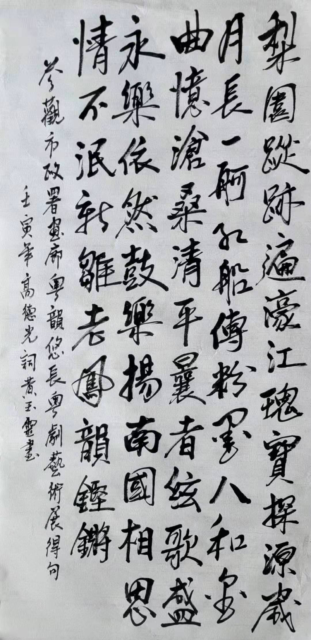 梨園蹤跡遍濠江瑰寶探源歲
月長一舸紅船傳粉墨人和金
曲憶滄桑清平曩者絃歌盛
永樂依然鼓樂揚南國相思
情不泯新雛老鳳韻鏗鏘
參觀市政署畫廊粵韻悠長粵劇藝術展得句
壬寅年高德光詞黃玉靈書